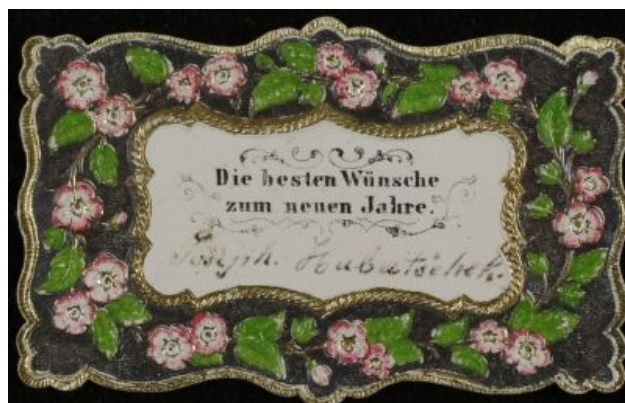 Die besten Wünsche
zum neuen Jahre.
Joseph. Habatschek.